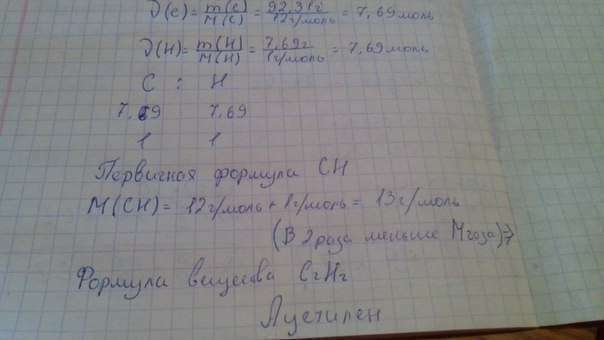 ν(C) = m(C)/M(C) = 92,31г/12г/моль = 7,69моль
ν(H) = m(H)/M(H) = 7,69г/1г/моль = 7,69моль
C : H
7,69 7,69
1 1
Первичная формула CH
M(CH) = 12г/моль + 1г/моль = 13г/моль
(В 2 раза меньше Mгаза) =>
Формула вещества C2H2
Ацетилен